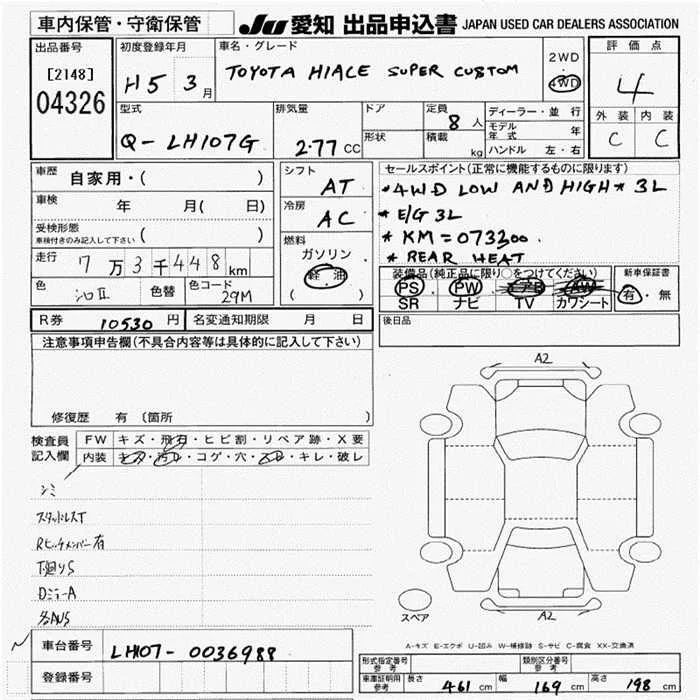 車内保管・守衛保管
JU 愛知 出品申込書 JAPAN USED CAR DEALERS ASSOCIATION
出品番号
[2148]
04326
初度登録年月
H5 3月
車名・グレード
TOYOTA HIACE SUPER CUSTOM
2WD
4WD
評価点
4
外装 内装
C C
型式
Q-LH107G
排気量
2.77 CC
ドア
形状
定員
8人
積載
kg
ディーラー・並行
モデル年式 年
ハンドル 左・右
車歴 自家用・( )
車検 年 月( 日)
受検形態
車検付きのみ記入して下さい ( )
走行 7万3千448km
色 シロII 色替 色コード 29M
シフト AT
冷房 AC
燃料
ガソリン
軽油
( )
セールスポイント(正常に機能するものに限ります)
*4WD LOW AND HIGH * 3L
* E/G 3L
* KM=073300.
* REAR HEAT
装備品(純正品に限り○をつけてください)
PS PW エアB AW
SR ナビ TV カワシート
新車保証書
有・無
R券 10530円 名変通知期限 月 日
後日品
注意事項申告欄(不具合内容等は具体的に記入して下さい)
修復歴 有〔箇所 〕
検査員記入欄
FW キズ・飛石・ヒビ割・リペア跡・X要
内装 キズ・汚れ・コゲ・穴・スレ・キレ・破レ
シミ
スタッドレスT
下廻りS
A2
A2
スペア
A-キズ E-エクボ U-凹み W-補修跡 S-サビ C-腐食 XX-交換済
車台番号 LH107-0036988
登録番号
形式指定番号 参考
類別区分番号 参考
車庫証明用 参考 長さ 461 cm 幅 169 cm 高さ 198 cm